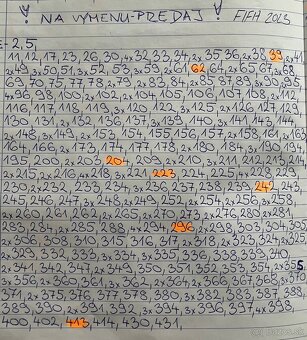 ! NA VÝMENU-PREDAJ ! FIFA 2023
E: 2,5,
11,12,17, 23, 26, 30, 4x32, 33, 34, 2x35, 36, 2x38, 39, 2x41
2x49, 3x50, 51, 3x52, 53, 3x53, 2x61, 62, 64, 2x65, 67, 3x68
69, 70, 75, 77, 78, 2x79, 2x83, 84, 2x85, 2x87, 89, 2x90, 95
4x96, 98, 100, 2x102, 2x104, 105, 106, 107, 108, 110
116, 117, 118, 119, 3x120, 129, 3x125, 2x126, 127, 129
130, 131, 2x132, 136, 2x137, 139, 140, 141, 143, 144
2x148, 3x149, 2x153, 154, 155, 156, 157, 2x158, 161, 2x
164, 166, 2x173, 174, 177, 178, 2x180, 184, 3x190, 193
195, 200, 203, 204, 209, 2x210, 3x211, 212, 213
2x215, 2x216, 4x218, 3x221, 223, 224, 225, 4x228, 229
230, 2x232, 233, 234, 3x236, 237, 238, 239, 242, 243
245, 246, 247, 3x248, 2x249, 252, 2x254, 2x256, 258
2x260, 261, 262, 2x265, 270, 273, 2x276, 280, 2x281
283, 284, 2x285, 288, 4x294, 296, 2x298, 303, 304, 305
2x306, 308, 310, 315, 316, 317, 2x318, 323, 324, 2x325
2x329, 332, 333, 3x334, 3x335, 336, 338, 339, 340
2x341, 342, 347, 2x349, 350, 351, 352, 353, 354, 2x355
3x356, 360, 361, 3x362, 2x364, 2x366, 367, 368, 3x
371, 2x375, 376, 377, 378, 380, 3x382, 383, 387, 388
389, 390, 2x391, 392, 3x394, 3x396, 397, 4x398
400, 402, 413, 414, 430, 431,